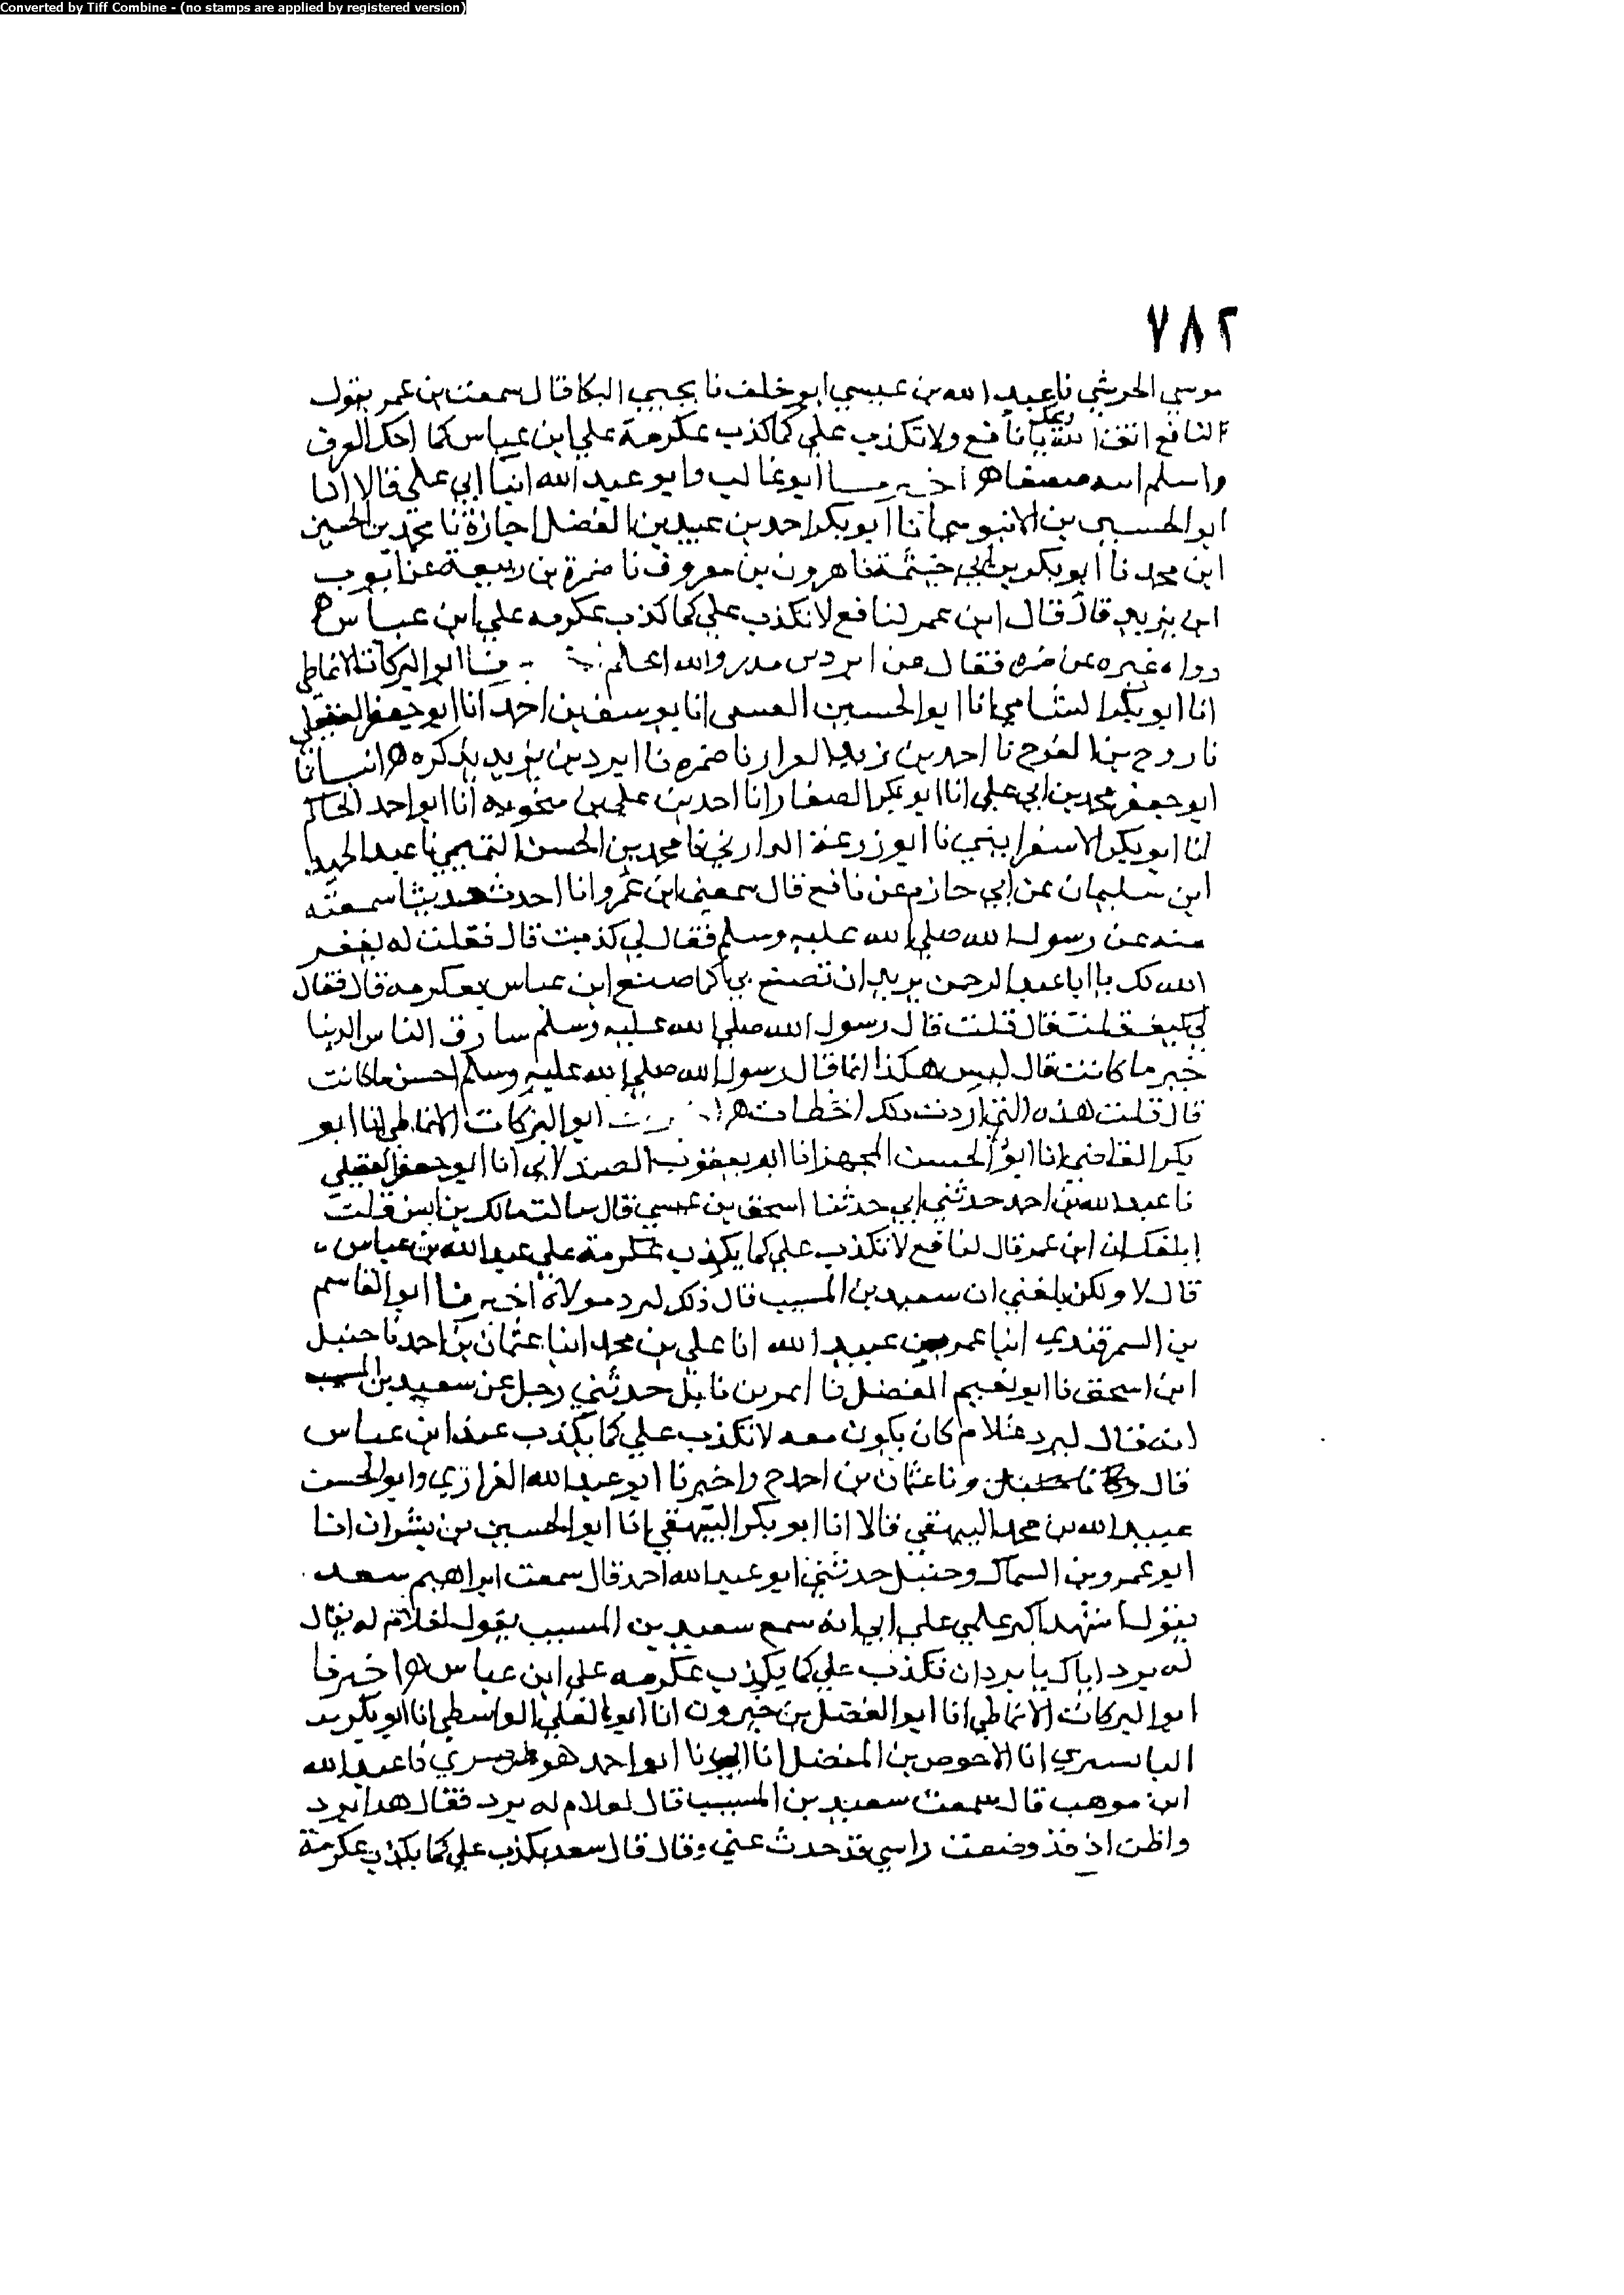 Converted by Tiff Combine - (no stamps are applied by registered version)
٧٨٢
موسي الحرشي نا عبد الله بن عيسي ابو خلف نا يحيي البكا قال سمعت بن عمر يقول
لنافع اتق الله ويحك يا نافع ولا تكذب علي كما كذب عكرمة علي ابن عباس كما احل الصرف
واسلم ابنه ابو غالب وابو عبد الله انبا ابي علي قالا انا
ابو الحسين بن الانبوسي انا ابو بكر احمد بن عبيد بن الفضل اجازة نا محمد بن الحسين
ابن محمد نا ابو بكر بن ابي خيثمة نا هرون بن معروف نا ضمرة بن ربيعة عن ايوب
ابن يزيد قال قال ابن عمر لنافع لا تكذب علي كما كذب عكرمه علي ابن عباس ه
رواه غيره عن ضمره فقال عن والله اعلم ابو البركات الانماطي
انا ابو بكر الشامي انا ابو الحسين انا يوسف بن احمد انا ابو جعفر العقيلي
نا روح بن الفرج نا احمد بن نا ضمره نا بن يزيد يذكره ه انبانا
ابو جعفر محمد بن ابي علي انا ابو بكر الصفار انا احمد بن علي بن منجويه انا ابو احمد الحاكم
انا ابو بكر الاسفرايني نا ابو زرعة الرازي نا محمد بن الحسن التميمي نا عبد الحميد
ابن سليمان عن ابي حازم عن نافع قال سمعني ابن عمر وانا احدث حديثا سمعته
منه عن رسول الله صلي الله عليه وسلم فقال لي كذبت قال فقلت له يغفر
الله لك يا ابا عبد الرحمن يريد ان تصنع بي كما صنع ابن عباس بعكرمه قال فقال
لي كيف قلت قال قلت قال رسول الله صلي الله عليه وسلم الناس الدنيا
خير ما كانت قال ليس هكذا انما قال رسول الله صلي الله عليه وسلم احسن ما كانت
قال قلت هذه التي اردت ولكن اخطات ه ابو البركات الانماطي انا ابو
بكر القاضي انا ابو الحسن المجهز انا ابو يعقوب الصيدلاني انا ابو جعفر العقيلي
نا عبد الله بن احمد حدثني ابي حدثنا اسحق بن عيسي قال سالت مالك بن انس قلت
ابلغك ان ابن عمر قال لنافع لا تكذب علي كما يكذب عكرمة علي عبد الله بن عباس
قال لا ولكن بلغني ان سعيد بن المسيب قال ذلك لبرد مولاه اخبرنا ابو القاسم
بن السمرقندي انبا عمر بن عبيد الله انا علي بن محمد انبا عثمان بن احمد نا حنبل
ابن اسحق نا ابو نعيم الفضل نا ايمن بن نابل حدثني رجل عن سعيد بن المسيب
انه قال لبرد غلام كان يكون معه لا تكذب علي كما يكذب عبد ابن عباس
قال ونا عثمان بن احمد ح واخبرنا ابو عبد الله الفرازي وابو الحسن
عبيد الله بن محمد البيهقي قالا انا ابو بكر البيهقي انا ابو الحسين بن بشران انا
ابو عمرو بن السماك وحنبل حدثني ابو عبد الله احمد قال سمعت ابراهيم سعد
يقول اشهد اكبر علمي علي ابي انه سمع سعيد بن المسيب يقول لغلام له يقال
له برد اياك يا برد ان تكذب علي كما يكذب عكرمه علي ابن عباس ه اخبرنا
ابو البركات الانماطي انا ابو الفضل بن خيرون انا ابو العلي الواسطي انا ابو بكر
البابسيري انا الاحوص بن المفضل انا ابي نا ابو احمد هو نا عبيد الله
ابن موهب قال سمعت سعيد بن المسيب قال لغلام له برد فقال هذا برد
واظن اذ قد وضعت راسي قد حدث عني وقال قال سعد يكذب علي كما يكذب عكرمة